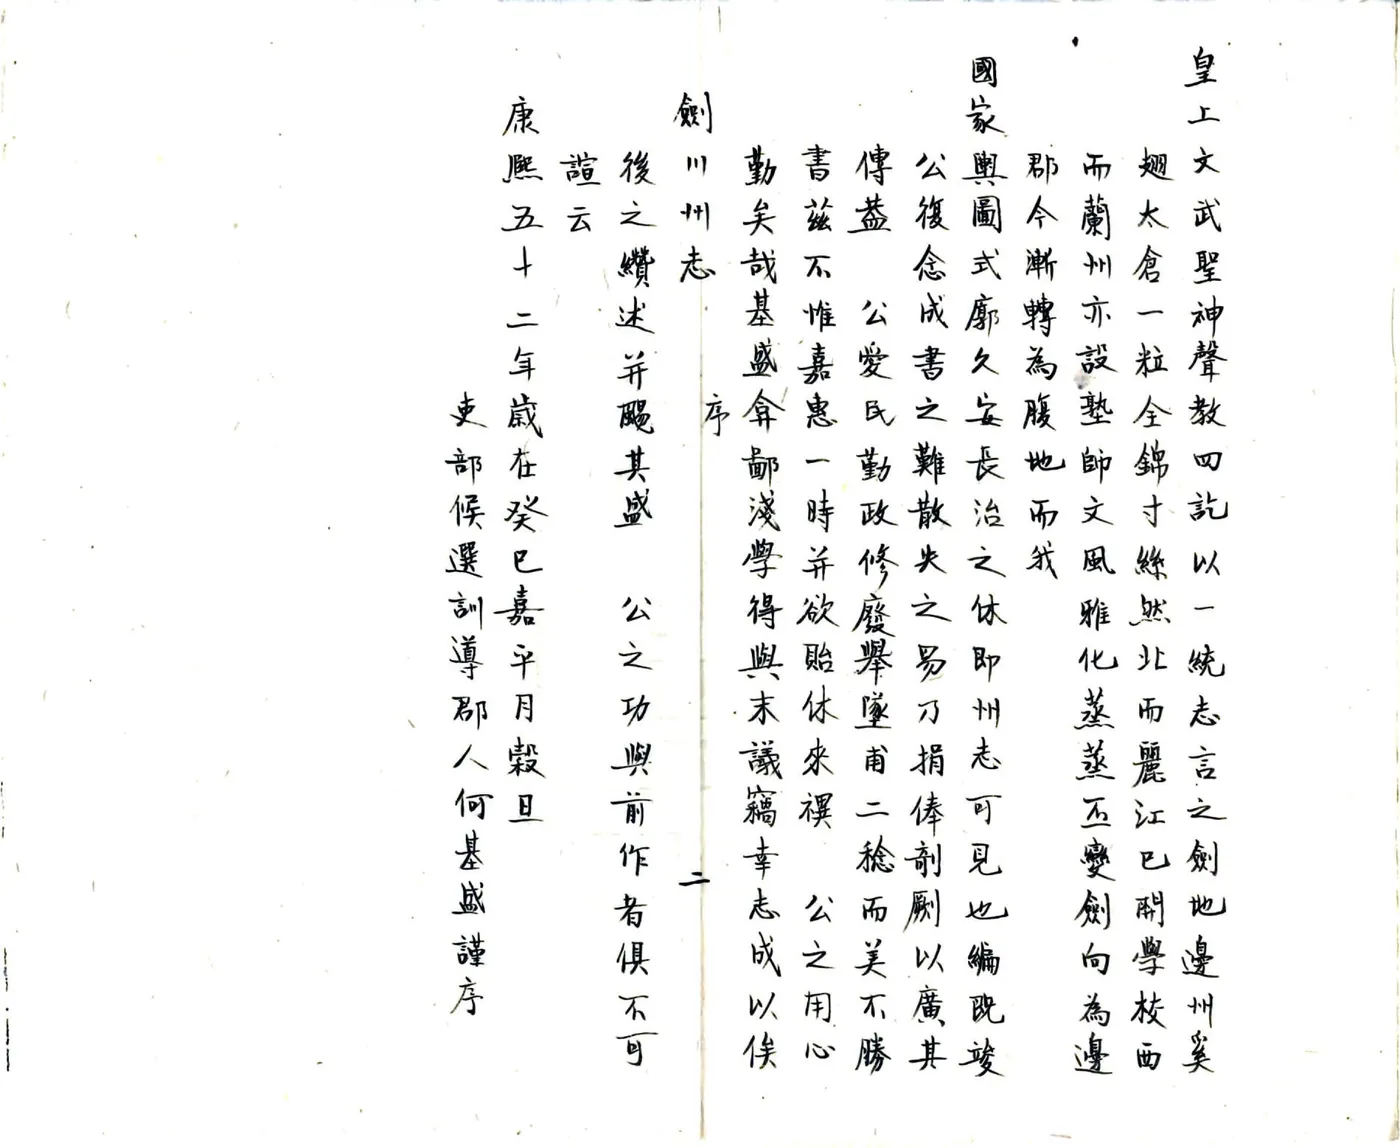 皇上文武聖神聲教四訖以一統志言之劍地邊州奚
翅太倉一粒全錦寸絲然北而麗江已開學校西
而蘭州亦設塾師文風雅化蒸蒸丕變劍向為邊
郡今漸轉為腹地而我
國家輿圖式廓久安長治之休即州志可見也編既竣
公復念成書之難散失之易乃捐俸剞劂以廣其
傳葢 公愛民勤政修廢舉墜甫二稔而美不勝
書兹不惟嘉惠一時并欲貽休來禩 公之用心
勤矣哉基盛弇鄙淺學得與末議竊幸志成以俟
劍川州志 序 二
後之纘述并颺其盛 公之功與前作者俱不可
諠云
康熙五十二年歲在癸巳嘉平月穀旦
吏部候選訓導郡人何基盛謹序